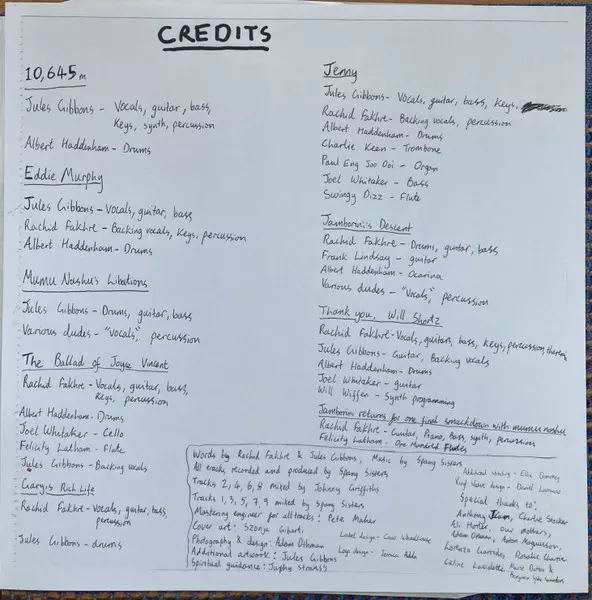 CREDITS
10,645m
Jules Gibbons - Vocals, guitar, bass,
Keys, synth, percussion
Albert Haddenham - Drums
Eddie Murphy
Jules Gibbons - Vocals, guitar, bass
Rachid Fakhre - Backing vocals, keys, percussion
Albert Haddenham - Drums
Mumu Nushu's Libations
Jules Gibbons - Drums, guitar, bass
Various dudes - "Vocals", percussion
The Ballad of Joyce Vincent
Rachid Fakhre - Vocals, guitar, bass,
Keys, percussion
Albert Haddenham - Drums
Joel Whitaker - Cello
Felicity Latham - Flute
Jules Gibbons - Backing vocals
Gary's Rich Life
Rachid Fakhre - Vocals, guitar, bass,
percussion
Jules Gibbons - drums
Jenny
Jules Gibbons - Vocals, guitar, bass, keys,
Rachid Fakhre - Backing vocals, percussion
Albert Haddenham - Drums
Charlie Keen - Trombone
Paul Eng Joo Ooi - Organ
Joel Whitaker - Bass
Swingy Dizz - Flute
Jamborini's Descent
Rachid Fakhre - Drums, guitar, bass
Frank Lindsay - guitar
Albert Haddenham - Ocarina
Various dudes - "Vocals", percussion
Thank you, Will Shortz
Rachid Fakhre - Vocals, guitars, bass, keys, percussion, theremin
Jules Gibbons - Guitar, Backing vocals
Albert Haddenham - Drums
Joel Whitaker - guitar
Will Wiffen - Synth programming
Jamborini returns for one final smackdown with mumu nushu
Rachid Fakhre - Guitar, Piano, Bass, synth, percussion
Felicity Latham - One Hundred Flutes
Words by Rachid Fakhre & Jules Gibbons, Music by Spang Sisters
All tracks recorded and produced by Spang Sisters
Tracks 2, 4, 6, 8 mixed by Johnny Griffiths
Tracks 1, 3, 5, 7, 9 mixed by Spang Sisters
Mastering engineer for all tracks: Pete Maher
Cover art:
Photography & design: Adam
Label design -
Additional artwork: Jules Gibbons
Logo design - Jessica
Spiritual guidance: Japhy
Special thanks to:
Anthony Charlie
Ali our mothers,
Adam Anton
Lorenza Rosalie
Celine